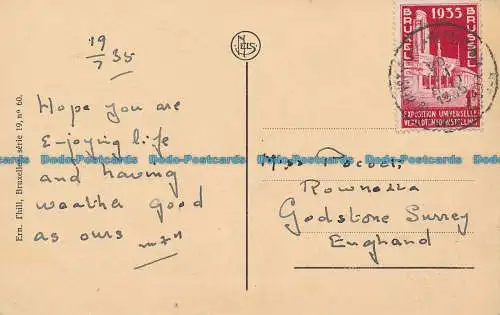 19/7 35
Hope you are
enjoying life
and having
weather good
as ours
Ern. Thill, Bruxelles, série 19, n° 60.
NELS
1935
BRUXELLES
BRUSSEL
EXPOSITION UNIVERSELLE
WERELDTENTOONSTELLING
Miss
Godstone Surrey
England
Dodo-Postcards Dodo-Postcards Dodo-Postcards Dodo-Postcards Dodo-Postcards